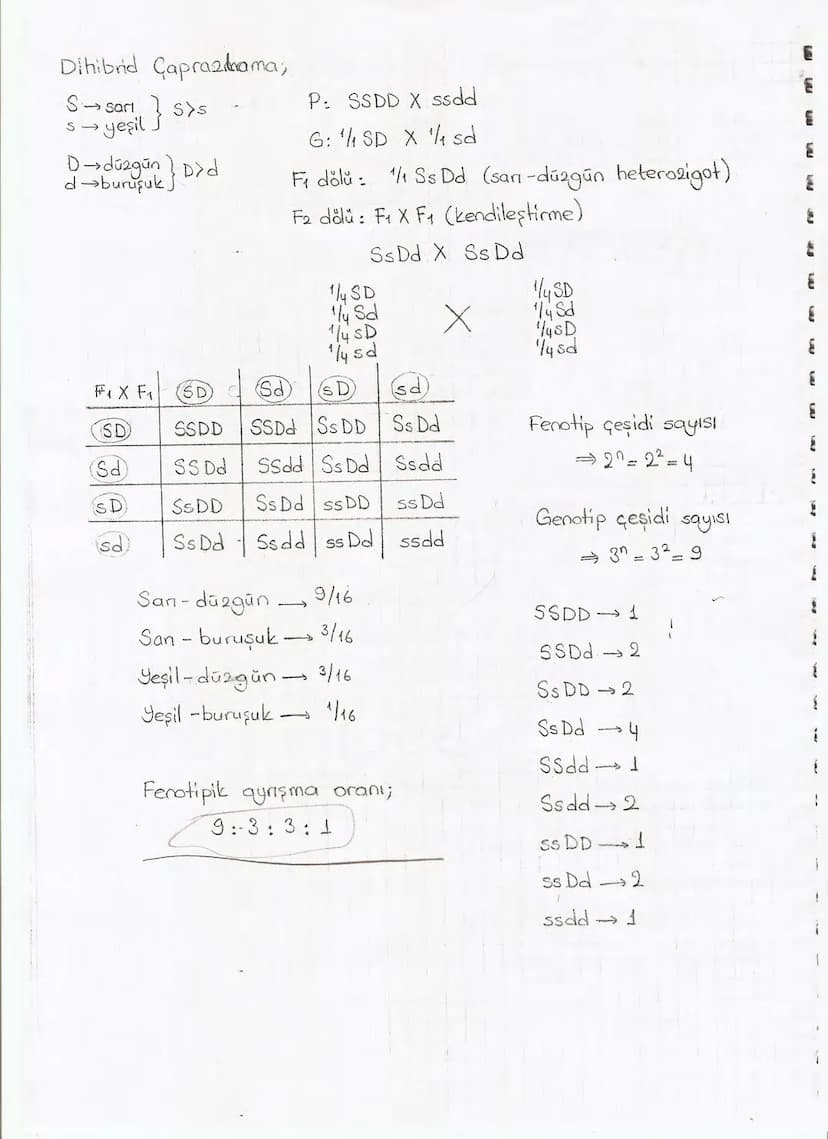 Dihibrid Çaprazlama;
S → sarı } S>s
s → yeşil
D → düzgün } D>d
d → buruşuk
P: SSDD X ssdd
G: 1/1 SD X 1/1 sd
F1 dölü: 1/1 SsDd (sarı-düzgün heterozigot)
F2 dölü: F1 X F1 (kendileştirme)
SsDd X SsDd
1/4 SD 1/4 SD
1/4 Sd 1/4 Sd
X
1/4 sD 1/4 sD
1/4 sd 1/4 sd
F1 X F1 SD Sd sD sd
SD SSDD SSDd SsDD SsDd
Sd SSDd SSdd SsDd Ssdd
sD SsDD SsDd ssDD ssDd
sd SsDd Ssdd ssDd ssdd
Sarı-düzgün → 9/16
Sarı-buruşuk → 3/16
Yeşil-düzgün → 3/16
Yeşil-buruşuk → 1/16
Fenotipik ayrışma oranı;
9:3:3:1
Fenotip çeşidi sayısı
⇒ 2ⁿ = 2² = 4
Genotip çeşidi sayısı
⇒ 3ⁿ = 3² = 9
SSDD → 1
SSDd → 2
SsDD → 2
SsDd → 4
SSdd → 1
Ssdd → 2
ssDD → 1
ssDd → 2
ssdd → 1